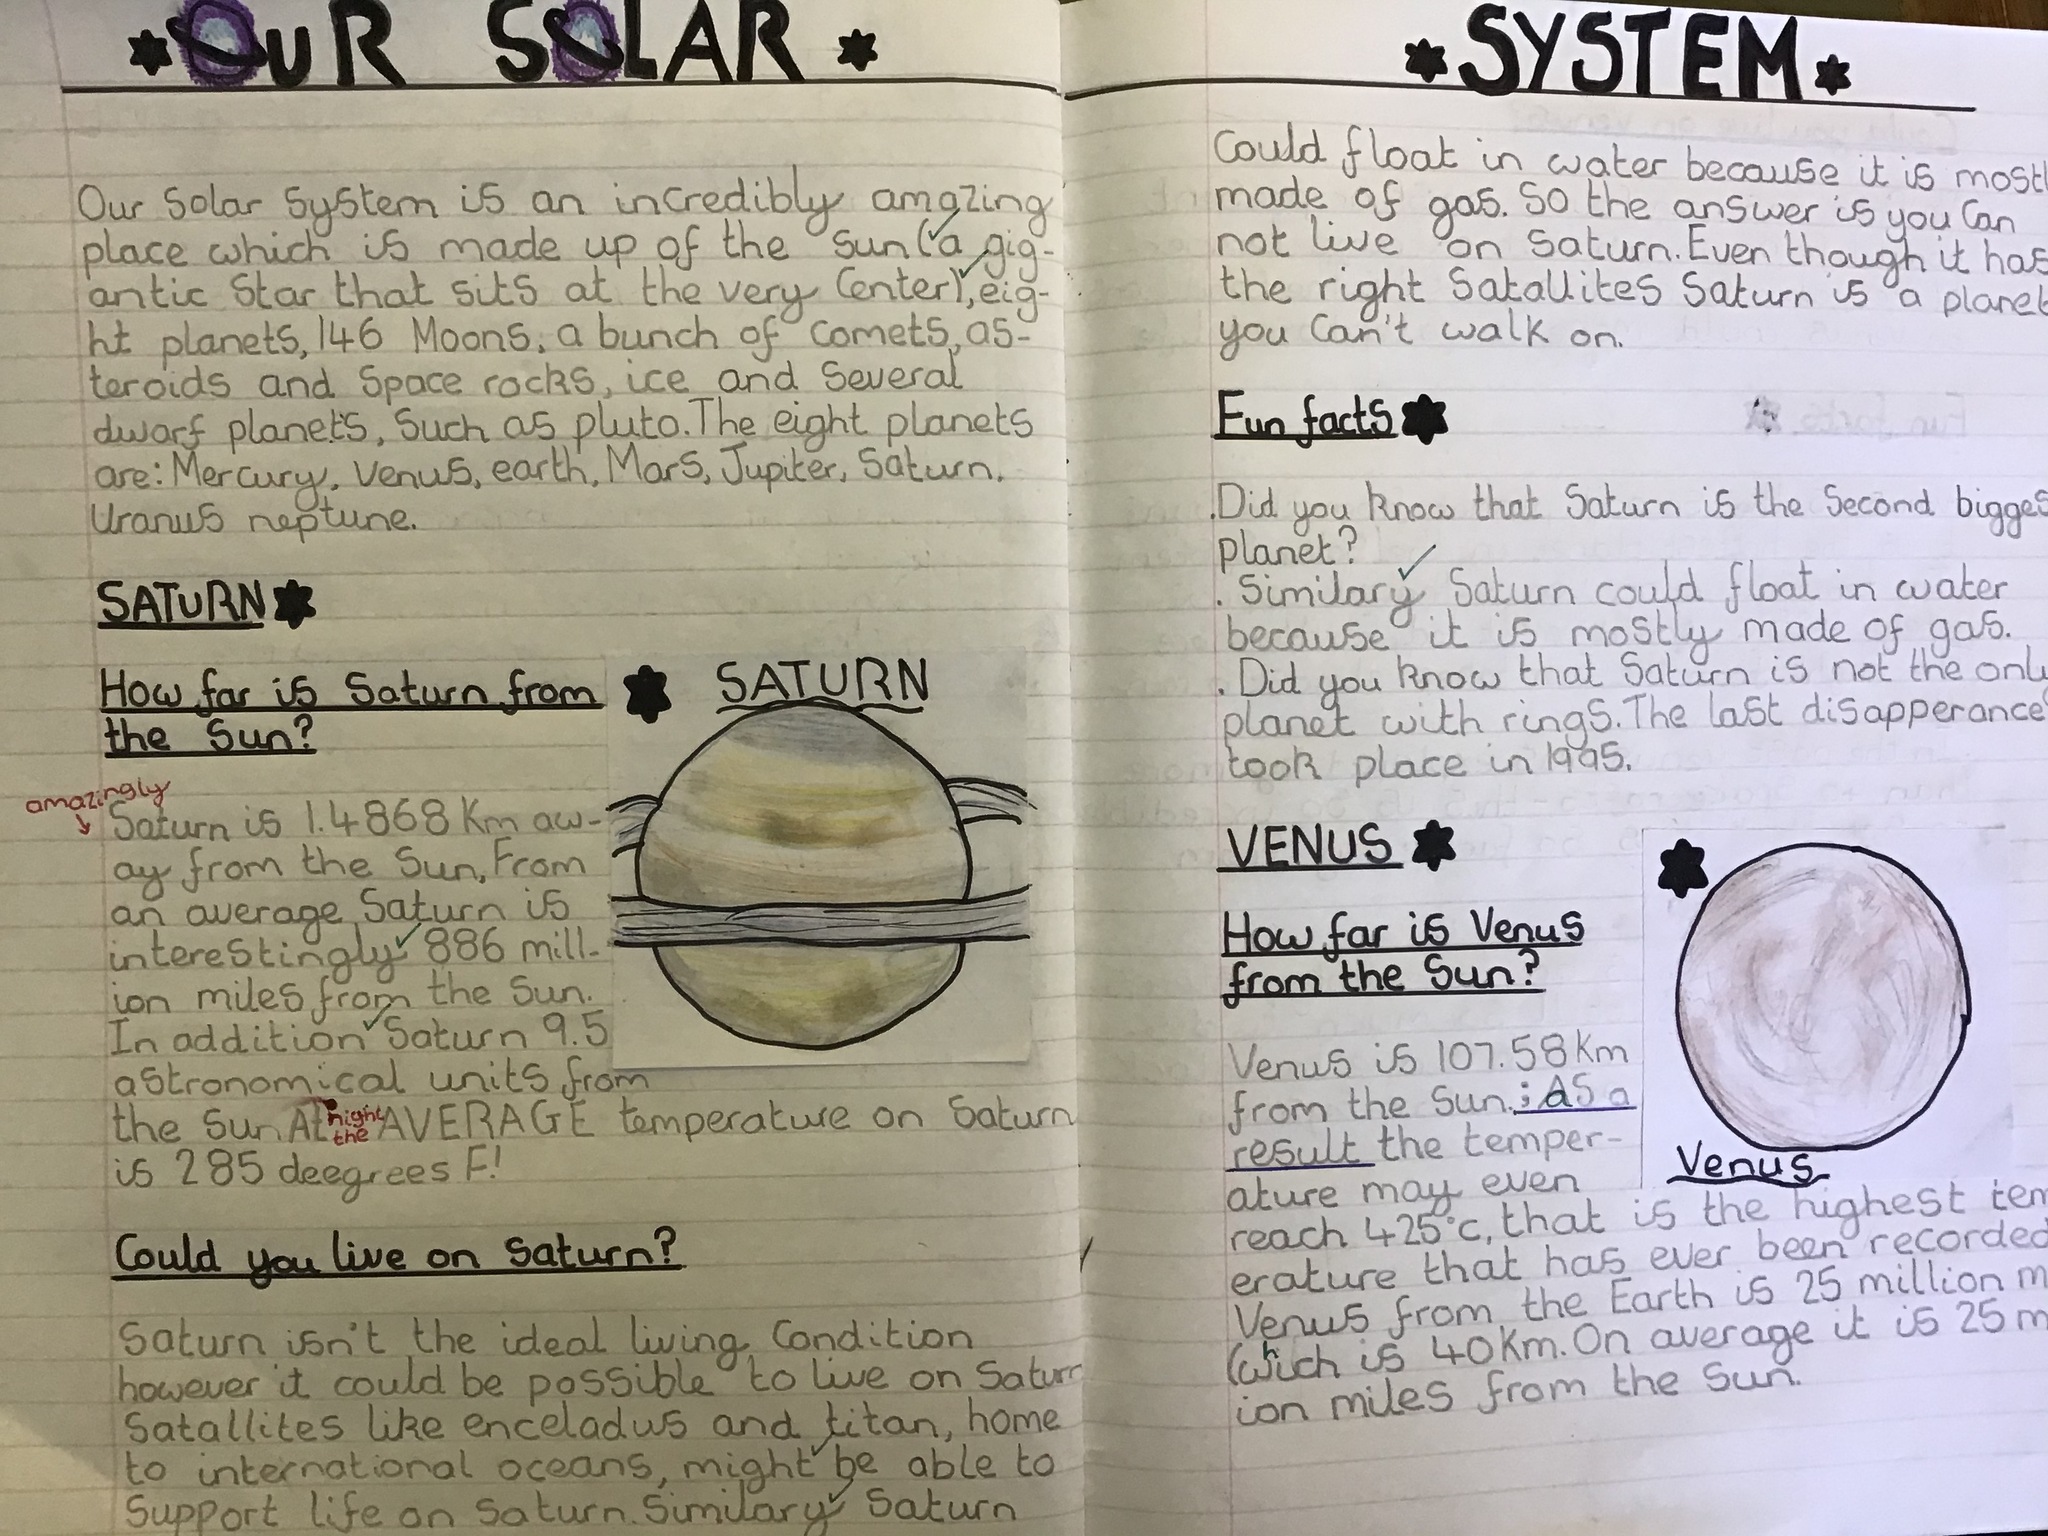 OUR SOLAR SYSTEM
Our Solar System is an incredibly amazing
place which is made up of the sun (a gig-
antic Star that sits at the very Center), eig-
ht planets, 146 Moons, a bunch of Comets, as-
teroids and Space rocks, ice and Several
dwarf planets, Such as pluto. The eight planets
are: Mercury, Venus, earth, Mars, Jupiter, Saturn,
Uranus neptune.
SATURN
How far is Saturn from
the Sun?
SATURN
amazingly
Saturn is 1.4868 Km aw-
ay from the Sun, From
an average Saturn is
interestingly 886 mill-
ion miles from the Sun.
In addition Saturn 9.5
astronomical units from
the Sun. At night the AVERAGE temperature on Saturn
is 285 deegrees F!
Could you live on Saturn?
Saturn isn't the ideal living Condition
however it could be possible to live on Saturn
Satallites like enceladus and titan, home
to international oceans, might be able to
Support life on Saturn. Similary Saturn
Could float in water because it is mostl
made of gas. So the answer is you Can
not live on Saturn. Even though it has
the right Satallites Saturn is a planet
you Can't walk on.
Fun facts
. Did you know that Saturn is the Second bigges
planet?
. Similary Saturn could float in water
because it is mostly made of gas.
. Did you know that Saturn is not the only
planet with rings. The last disapperance
took place in 1995.
VENUS
How far is Venus
from the Sun?
Venus is 107.58 Km
from the Sun. ; As a
result the temper-
ature may even
Venus
reach 425°c, that is the highest tem
erature that has ever been recorded
Venus from the Earth is 25 million m
(which is 40 Km. On average it is 25 m
ion miles from the Sun.